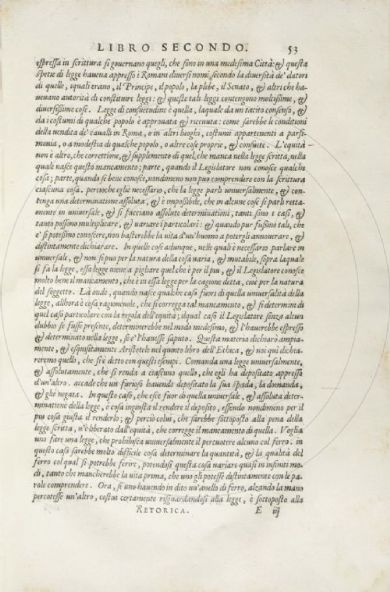 LIBRO SECONDO. 53
espressa in scrittura si governano quegli, che sino in una medesima Città: & questa
spetie di legge haueua appresso i Romani diuersi nomi, secondo la diuersità de' datori
di quelle, quali erano, il Principe, il popolo, la plebe, il Senato, & altri che ha-
ueuano autorità di constituire leggi: & queste tali legge contengono moltissime, &
diuersissime cose. Legge di consuetudine è quella, laquale da un tacito consenso, &
da i costumi di qualche popolo è approuata & riceuuta: come sarebbe le conditioni
della vendita de' caualli in Roma, o in altri luoghi, costumi appartenenti a parsi-
monia, o a modestia di qualche popolo, o altre cose proprie, & consuete. L'equità
non è altro, che correttione, & supplemento di quel, che manca nella legge scritta, nella
quale nasce questo mancamento; parte, quando il Legislatore non conosce qualche
cosa; parte, quando se bene conosce, nondimeno non puo comprendere con la scrittura
ciascuna cosa. percioche egli è necessario, che la legge parli uniuersalmente, & con-
tenga una determinatione assoluta, & è impossibile, che in alcune cose si parli retta-
mente in uniuersale, & si facciano assolute determinationi, tanti sino i casi, &
tanto possono multiplicare, & variare i particolari: & quando pur fussino tali, che
e' si potessino conoscere, non basterebbe la vita d'un'huomo a potergli annouerare, &
distintamente dichiarare. In quelle cose adunque, nelle quali è necessario parlare in
uniuersale, & non si puo per la natura della cosa uaria, & mutabile, sopra laquale
si fa la legge, essa legge uiene a pigliare quel che è per il piu, & il Legislatore conosce
molto bene il mancamento, che è in essa legge per la cagione detta, cioè per la natura
del soggetto. Là onde, quando nasce qualche caso fuori di quella uniuersalità della
legge, allhora è cosa ragioneuole, che si corregga tal mancamento, & si determini di
quel caso particolare con la regola dell'equità; ilqual caso il Legislatore senza alcun
dubbio se fusse presente, determinerebbe nel modo medesimo, & l'hauerebbe espresso
& determinato nella legge, se e' l'hauesse saputo. Questa materia dichiarò ampia-
mente, & esquisitamente Aristotele nel quinto libro dell'Ethica, & noi qui dichia-
reremo quello, che s'è ditto con questi esempi. Comanda una legge uniuersalmente,
& assolutamente, che si renda a ciascuno quello, che egli ha depositato appresso
d'un'altro. accade che un furioso hauendo depositato la sua spada, la dimanda,
& gli è negata. In questo caso, che esce fuor di quella uniuersale, & assoluta deter-
minatione della legge, è cosa ingiusta il rendere il deposito, essendo nondimeno per il
piu cosa giusta il renderlo; & però colui, che sarebbe sottoposto alla pena della
legge scritta, n'è liberato dall'equità, che corregge il mancamento di quella. Voglia
uno fare una legge, che prohibisca uniuersalmente il percuotere alcuno col ferro. in
questo caso sarebbe molto difficile cosa determinare la quantità, & la qualità del
ferro col qual si potrebbe ferire, potendosi questa cosa uariare quasi in infiniti mo-
di, tanto che mancherebbe la vita prima, che uno gli potesse distintamente con le pa-
role comprendere. Ora, se uno hauendo in dito un'anello di ferro, alzando la mano
percotesse un'altro, costui certamente risguardandosi alla legge, è sottoposto alla
RETORICA. E iij